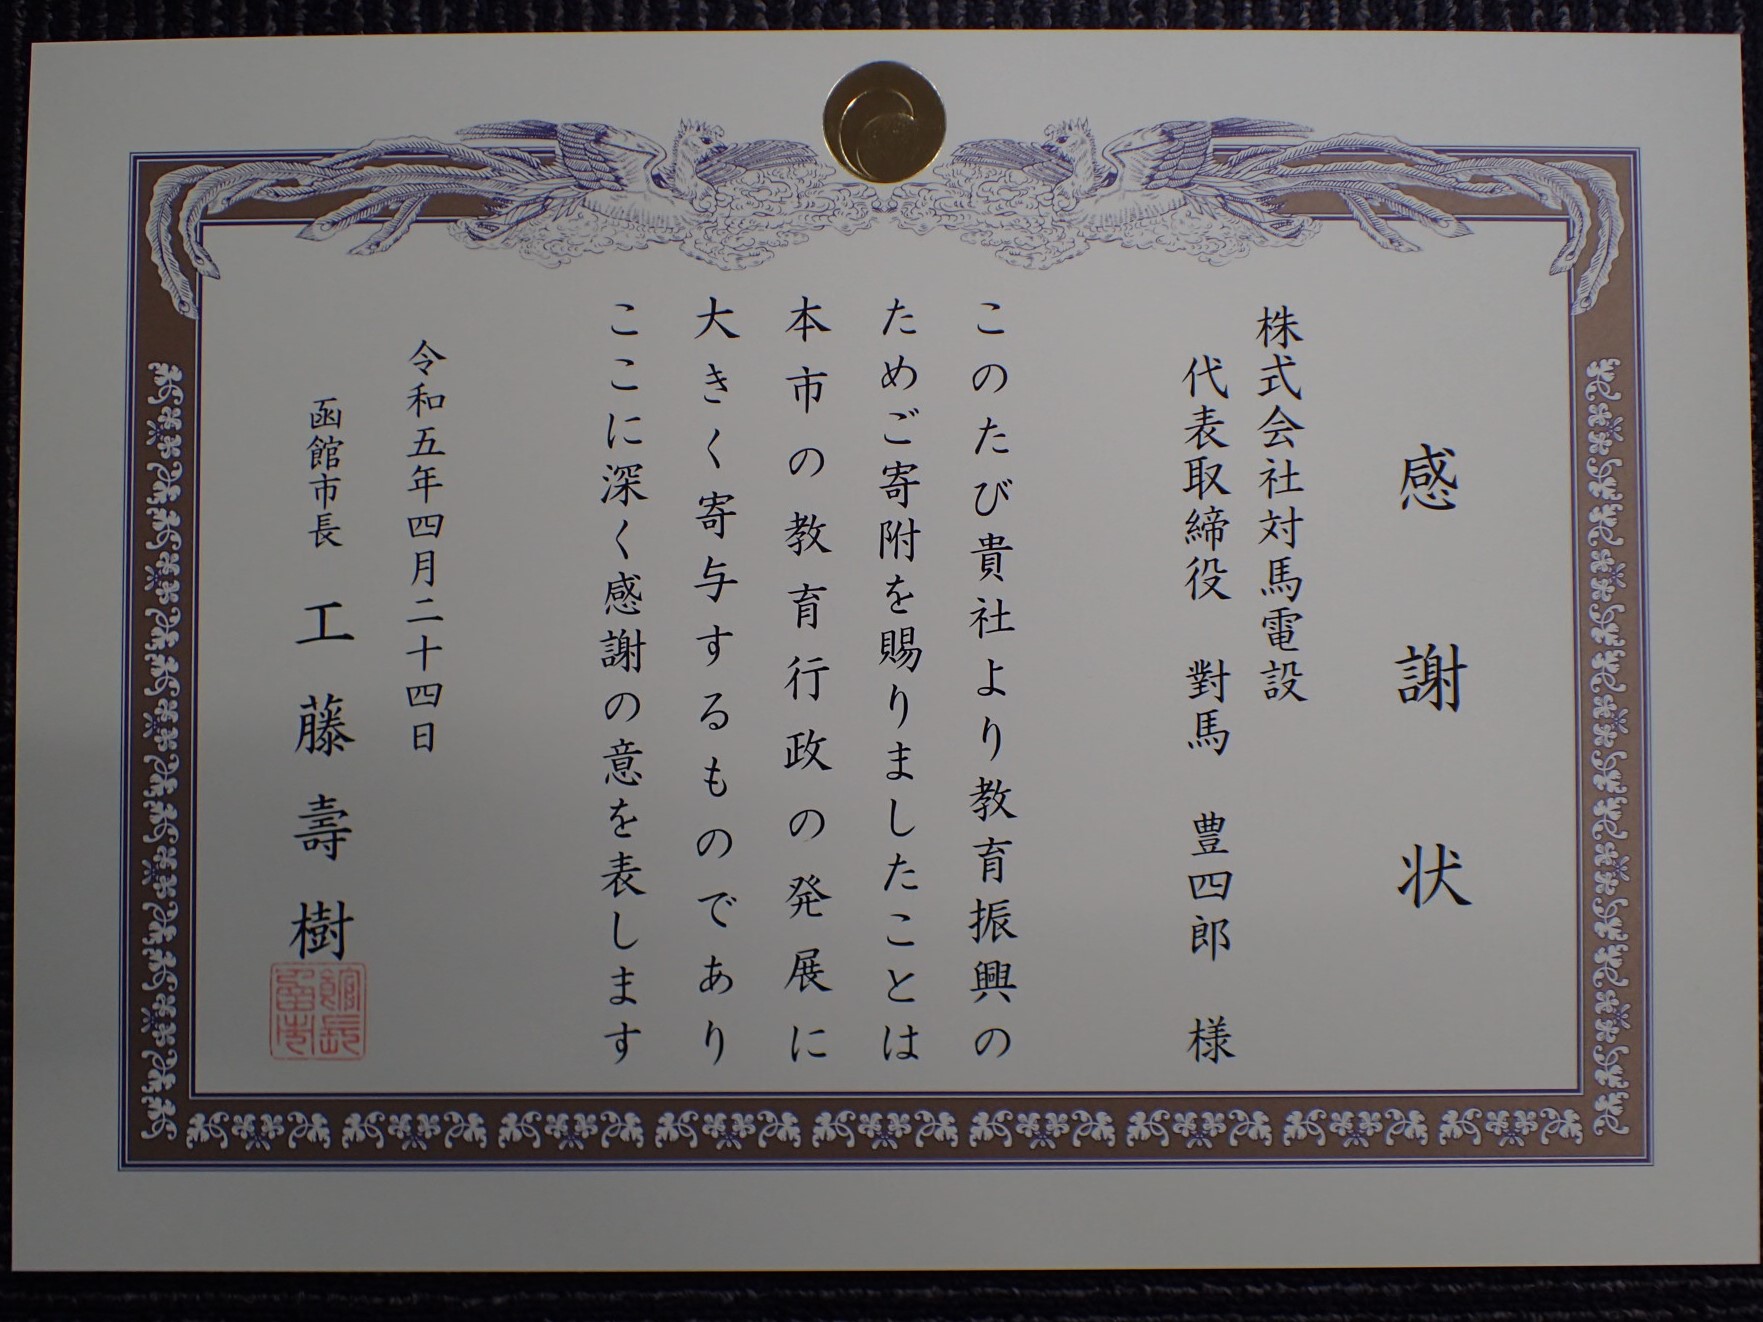 感謝状
株式会社対馬電設
代表取締役 對馬 豊四郎 様
このたび貴社より教育振興の
ためご寄附を賜りましたことは
本市の教育行政の発展に
大きく寄与するものであり
ここに深く感謝の意を表します
令和五年四月二十四日
函館市長 工藤壽樹